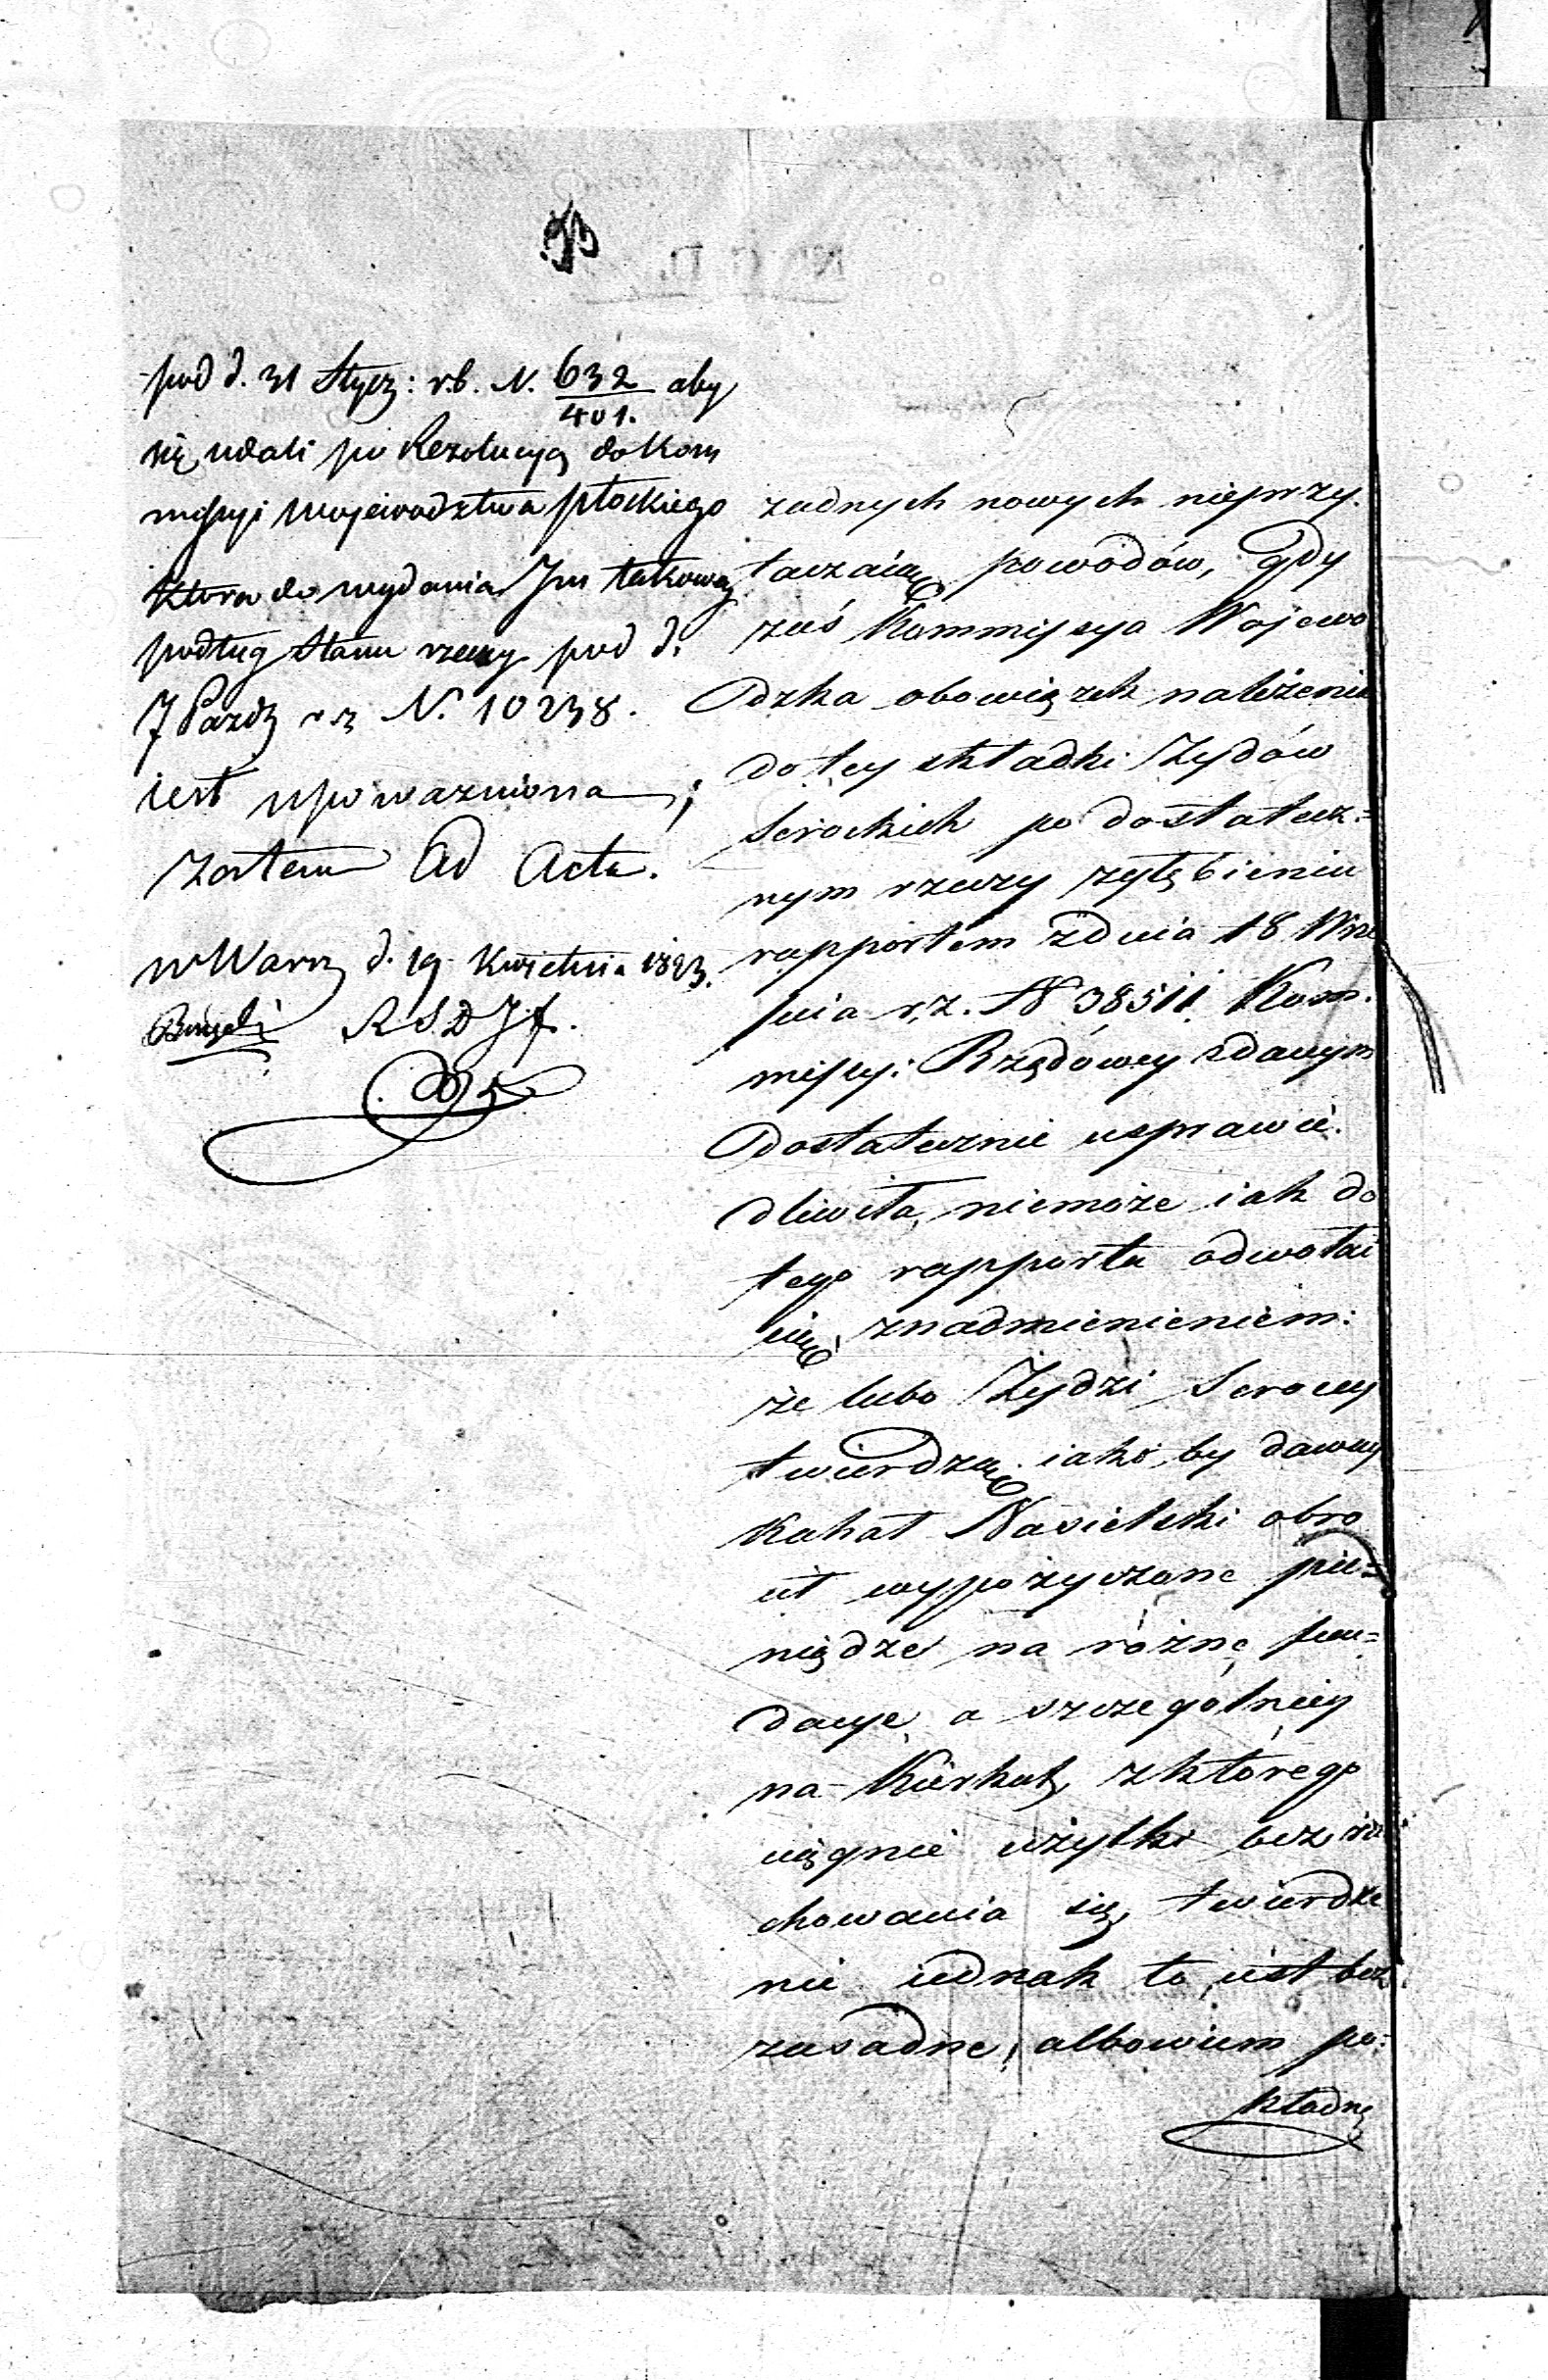 pod d. 31 Stycz: r.b. N. 632/401. aby
się udali po Rezolucyą do Kom
missyi Województwa Płockiego
która do wydania Im takowey
podług stanu rzeczy pod d.
7 Paźdz r. z. N. 10238.
iest upoważniona;
zatem Ad Acta.
w Warsz d. 19 Kwietnia 1823.
R S D J
żadnych nowych nieprzy-
taczaiąc powodów, gdy
zaś Kommissya Wojewo
dzka obowiązek należenia
do tey składki Żydów
Serockich po dostatecz=
nym rzeczy zgłębieniu
rapportem z dnia 18 Wrze
śnia r. z. N 38511 Kom-
missyi Rządowey zdanym
dostatecznie usprawie-
dliwiła, niemoże iak do
tego rapportu odwołać
się, z nadmienieniem:
że lubo Żydzi Seroccy
twierdzą iakoby dawny
Kahał Nasielski obro
cił wypożyczone pie=
niądze na różne fun=
dacye a szczególniey
na Kierkut, z którego
ciągnie użytki bez ra
chowania się, twierdze
nie iednak to iest bez
zasadne, albowiem po-
kładne